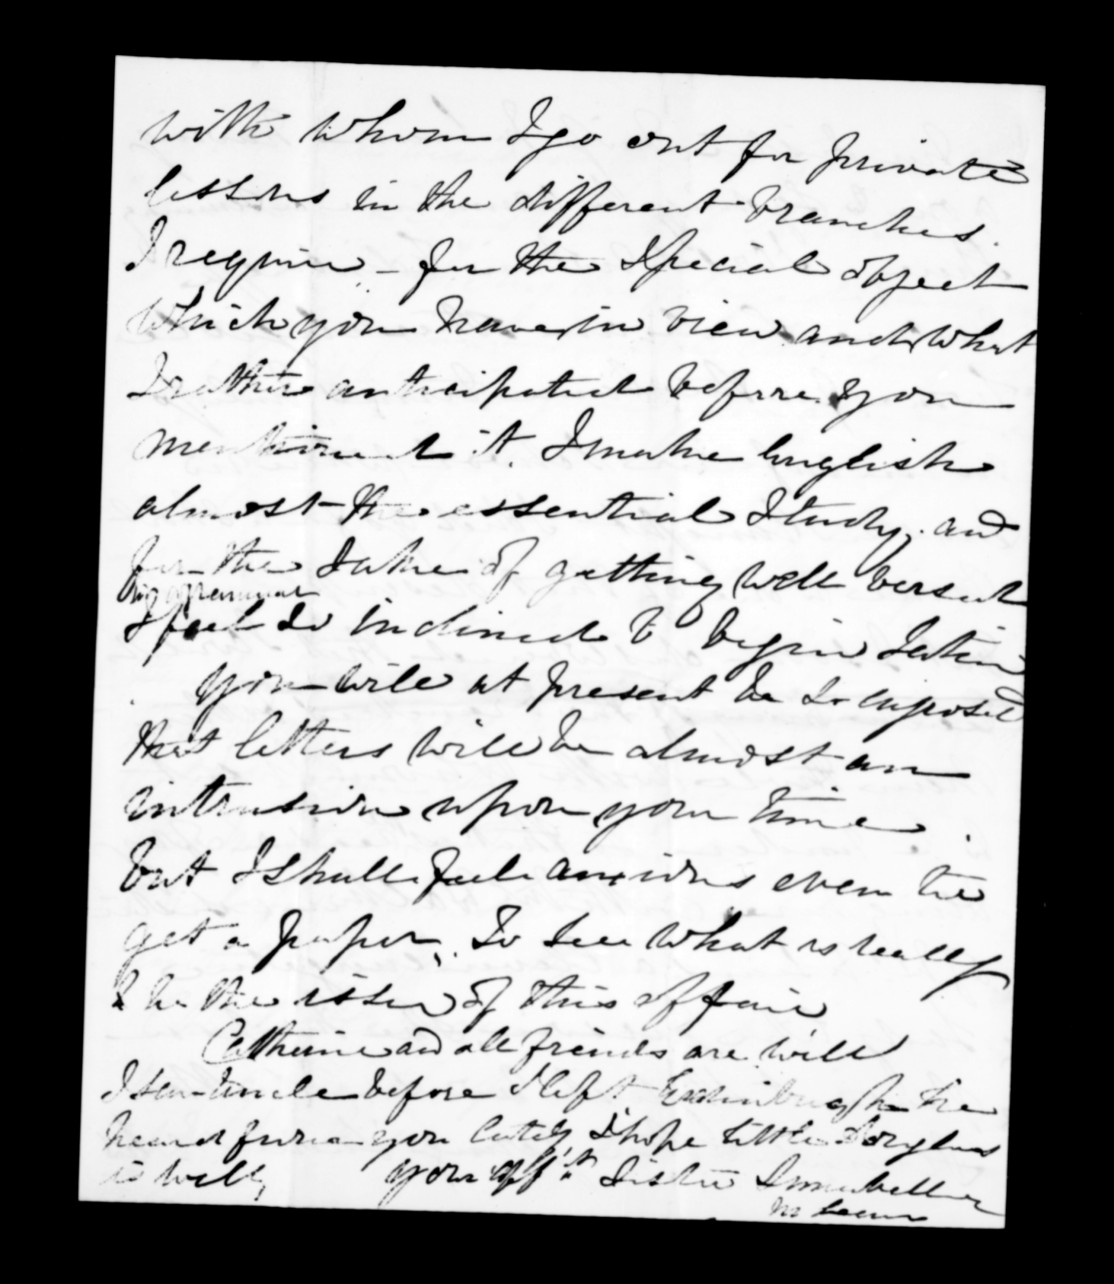 with whom I go out for private
lessons in the different branches
I require - for the special object
which you have in view and what
I rather anticipated before you
mentioned it. I make English
almost the essential Study, and
for the sake of getting well versed
in grammar
I feel so inclined to begin Latin
You will at present be so
that letters will be almost an
intrusion upon your time.
but I shall feel anxious even to
get a paper, to see what is really
to be the issue of this affair
Catherine and all friends are well
I saw Uncle before I left Edinburgh he
heard from you lately I hope little Douglas
is well, your afft Sister Annabella
McLean